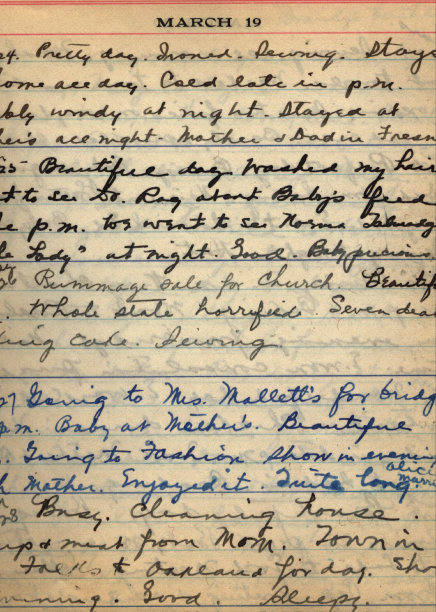 MARCH 19
24. Pretty day. Ironed. Sewing. Stayed
home all day. Cold late in p.m.
windy at night. Stayed at
all night. Mother & Dad in Fresno
25 Beautiful day. Washed my hair
to see Dr. Ray about Baby's feed
p.m. we went to see Norma Talmadge
Lady" at night. Good. Baby precious
26 Rummage sale for Church. Beautiful
Whole state horrified. Seven dead
Sewing
27 Going to Mrs. Mallett's for bridge
p.m. Baby at Mother's. Beautiful
Going to Fashion show in evening
Mother. Enjoyed it. Quite long. Alice
marri
28 Busy. Cleaning house.
& meat from Mom. Town in
Folks to Oakland for day.
Good. Sleepy.